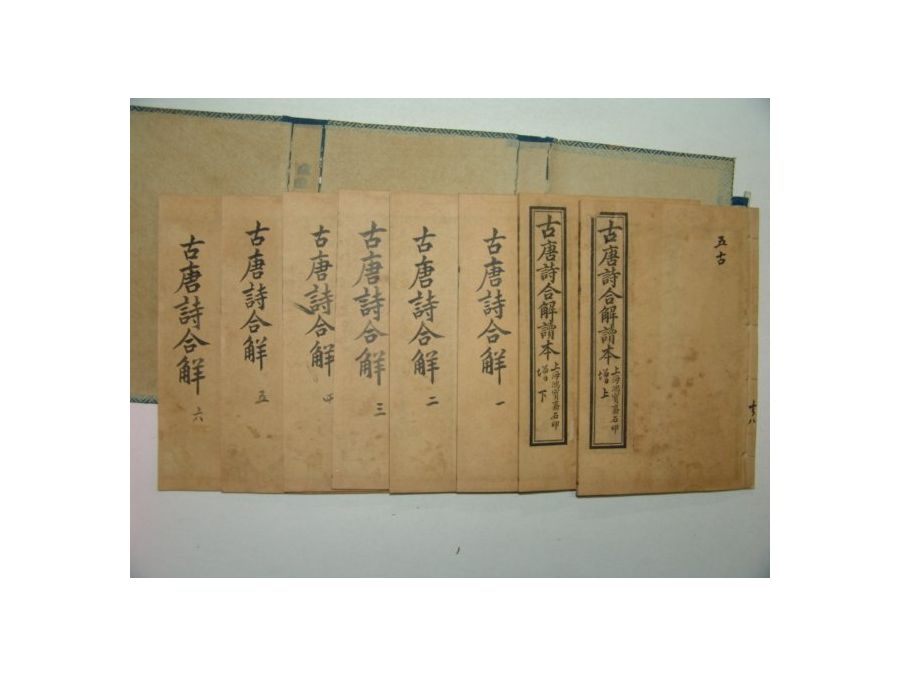 五古
古唐詩合解讀本
增上
上海鴻寶齋石印
古唐詩合解讀本
增下
上海鴻寶齋石印
古唐詩合解 一
古唐詩合解 二
古唐詩合解 三
古唐詩合解 四
古唐詩合解 五
古唐詩合解 六